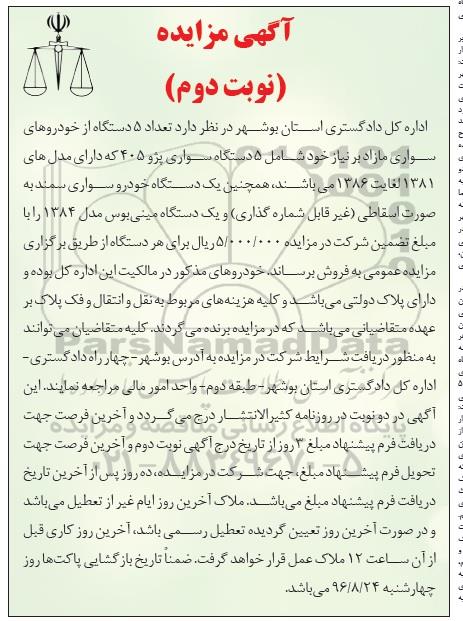 آگهی مزایده
(نوبت دوم)
اداره کل دادگستری استان بوشهر در نظر دارد تعداد ۵ دستگاه از خودروهای
سواری مازاد بر نیاز خود شامل ۵ دستگاه سواری پژو ۴۰۵ که دارای مدل های
۱۳۸۱ لغایت ۱۳۸۶ می باشند، همچنین یک دستگاه خودرو سواری سمند به
صورت اسقاطی (غیر قابل شماره گذاری) و یک دستگاه مینی‌بوس مدل ۱۳۸۴ را با
مبلغ تضمین شرکت در مزایده ۵/۰۰۰/۰۰۰ ریال برای هر دستگاه از طریق برگزاری
مزایده عمومی به فروش برساند. خودروهای مذکور در مالکیت این اداره کل بوده و
دارای پلاک دولتی می‌باشد و کلیه هزینه‌های مربوط به نقل و انتقال و فک پلاک بر
عهده متقاضیانی می‌باشد که در مزایده برنده می‌گردند. کلیه متقاضیان می‌توانند
به منظور دریافت شرایط شرکت در مزایده به آدرس بوشهر-چهار راه دادگستری-
اداره کل دادگستری استان بوشهر- طبقه دوم- واحد امور مالی مراجعه نمایند. این
آگهی در دو نوبت در روزنامه کثیرالانتشار درج می‌گردد و آخرین فرصت جهت
دریافت فرم پیشنهاد مبلغ ۳ روز از تاریخ درج آگهی نوبت دوم و آخرین فرصت جهت
تحویل فرم پیشنهاد مبلغ، جهت شرکت در مزایده، ده روز پس از آخرین تاریخ
دریافت فرم پیشنهاد مبلغ می‌باشد. ملاک آخرین روز ایام غیر از تعطیل می‌باشد
و در صورت آخرین روز تعیین گردیده تعطیل رسمی باشد، آخرین روز کاری قبل
از آن ساعت ۱۲ ملاک عمل قرار خواهد گرفت. ضمناً تاریخ بازگشایی پاکت‌ها روز
چهارشنبه ۹۶/۸/۲۴ می‌باشد.
ParsNamadData
پایگاه اطلاع رسانی مناقصه و مزایده